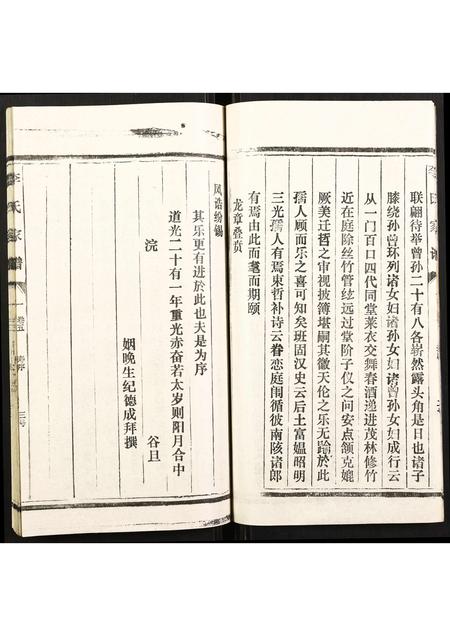 联翩待举曾孙二十有八各崭然露头角是日也诸子
膝绕孙曾环列诸女妇诸孙女妇诸曾孙女妇成行云
从一门百口四代同堂莱衣交舞春酒递进茂林修竹
近在庭除丝竹管绞远过堂阶子仪之问安点颔克媲
厥美迁哲之审视披簿堪嗣其徽天伦之乐无踰於此
孺人顾而乐之喜可知矣班固汉史云后土富媪昭明
三光孺人有焉束哲补诗云眷恋庭闱循彼南陔诸郎
有焉由此而耄而期颐
龙章叠贲
凤诰纷锡
其乐更有进於此也夫是为序
道光二十有一年重光赤奋若太岁则阳月合中
浣 谷旦
姻晚生纪德成拜撰
李氏家谱